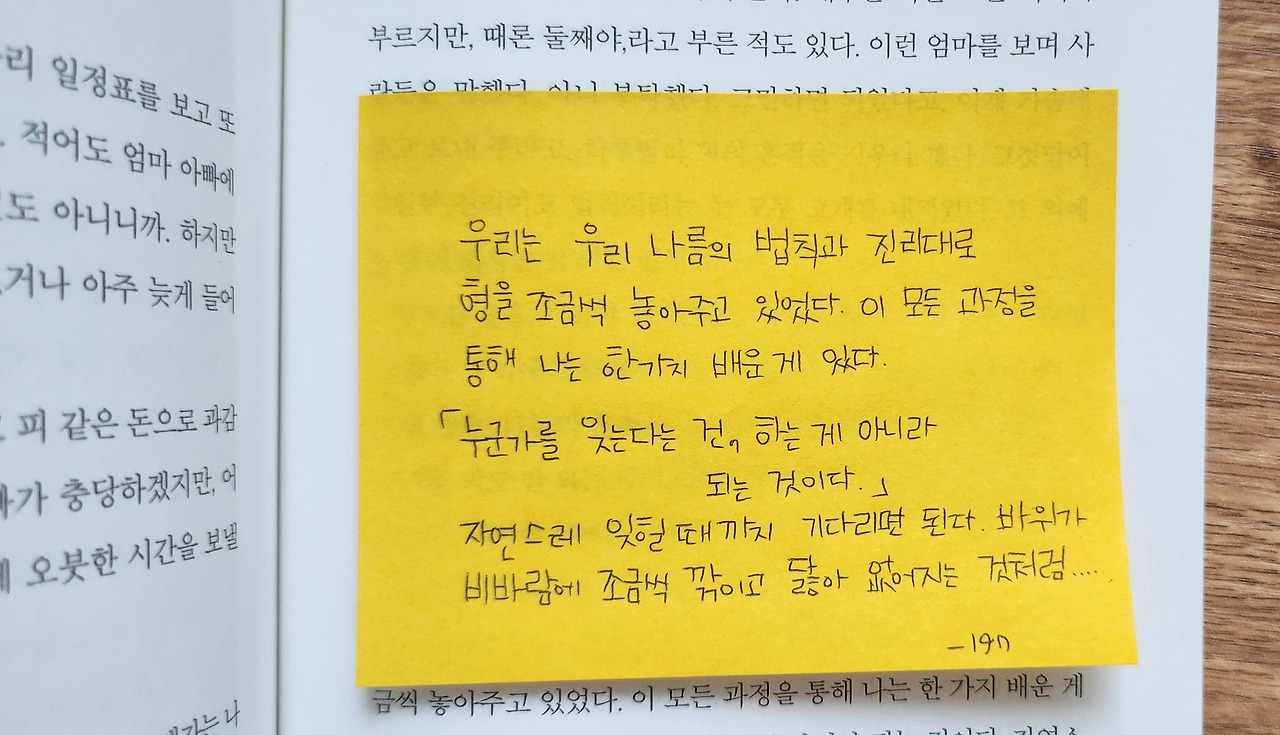 리 일정표를 보고 또
적어도 엄마 아빠에
도 아니니까. 하지만
거나 아주 늦게 들어
피 같은 돈으로 과감
가 충당하겠지만, 어
오붓한 시간을 보낼
부르지만, 때론 둘째야,라고 부른 적도 있다. 이런 엄마를 보며 사
우리는 우리 나름의 법칙과 진리대로
형을 조금씩 놓아주고 있었다. 이 모든 과정을
통해 나는 한가지 배운 게 있다.
「누군가를 잊는다는 건, 하는 게 아니라
되는 것이다.」
자연스레 잊힐 때까지 기다리면 된다. 바위가
비바람에 조금씩 깎이고 닳아 없어지는 것처럼....
-197
금씩 놓아주고 있었다. 이 모든 과정을 통해 나는 한 가지 배운 게